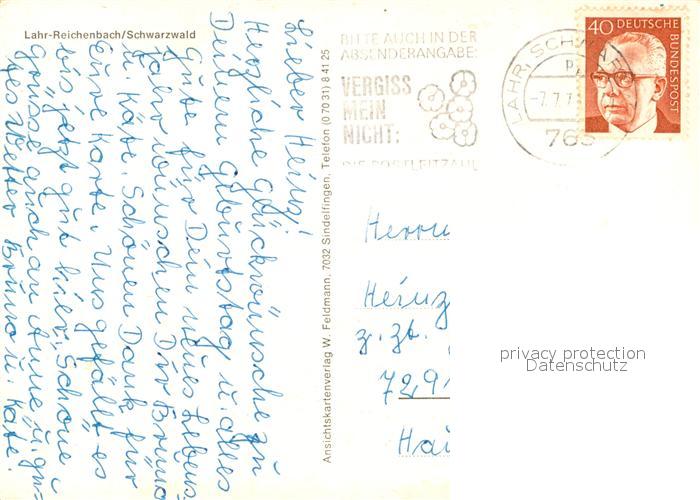 Lahr-Reichenbach/Schwarzwald
Lieber Heinz!
Herzliche Glückwünsche zu
Deinem Geburtstag u. alles
Gute für Dein neues Lebens-
jahr wünschen Dir Bruno
u. Käte. Schönen Dank für
Eure Karte. Uns gefällt es
bis jetzt gut hier. Schöne
Grüsse auch an Anne u. gu-
tes Wetter Bruno u. Käte.
Ansichtskartenverlag W. Feldmann, 7032 Sindelfingen, Telefon (07031) 84125
BITTE AUCH IN DER
ABSENDERANGABE:
VERGISS
MEIN
NICHT:
DIE POSTLEITZAHL
LAHR, SCHWARZW
-7.7.7
763
40 DEUTSCHE
BUNDESPOST
Herrn
Heinz
z. Zt.
7291
Hai
privacy protection
Datenschutz